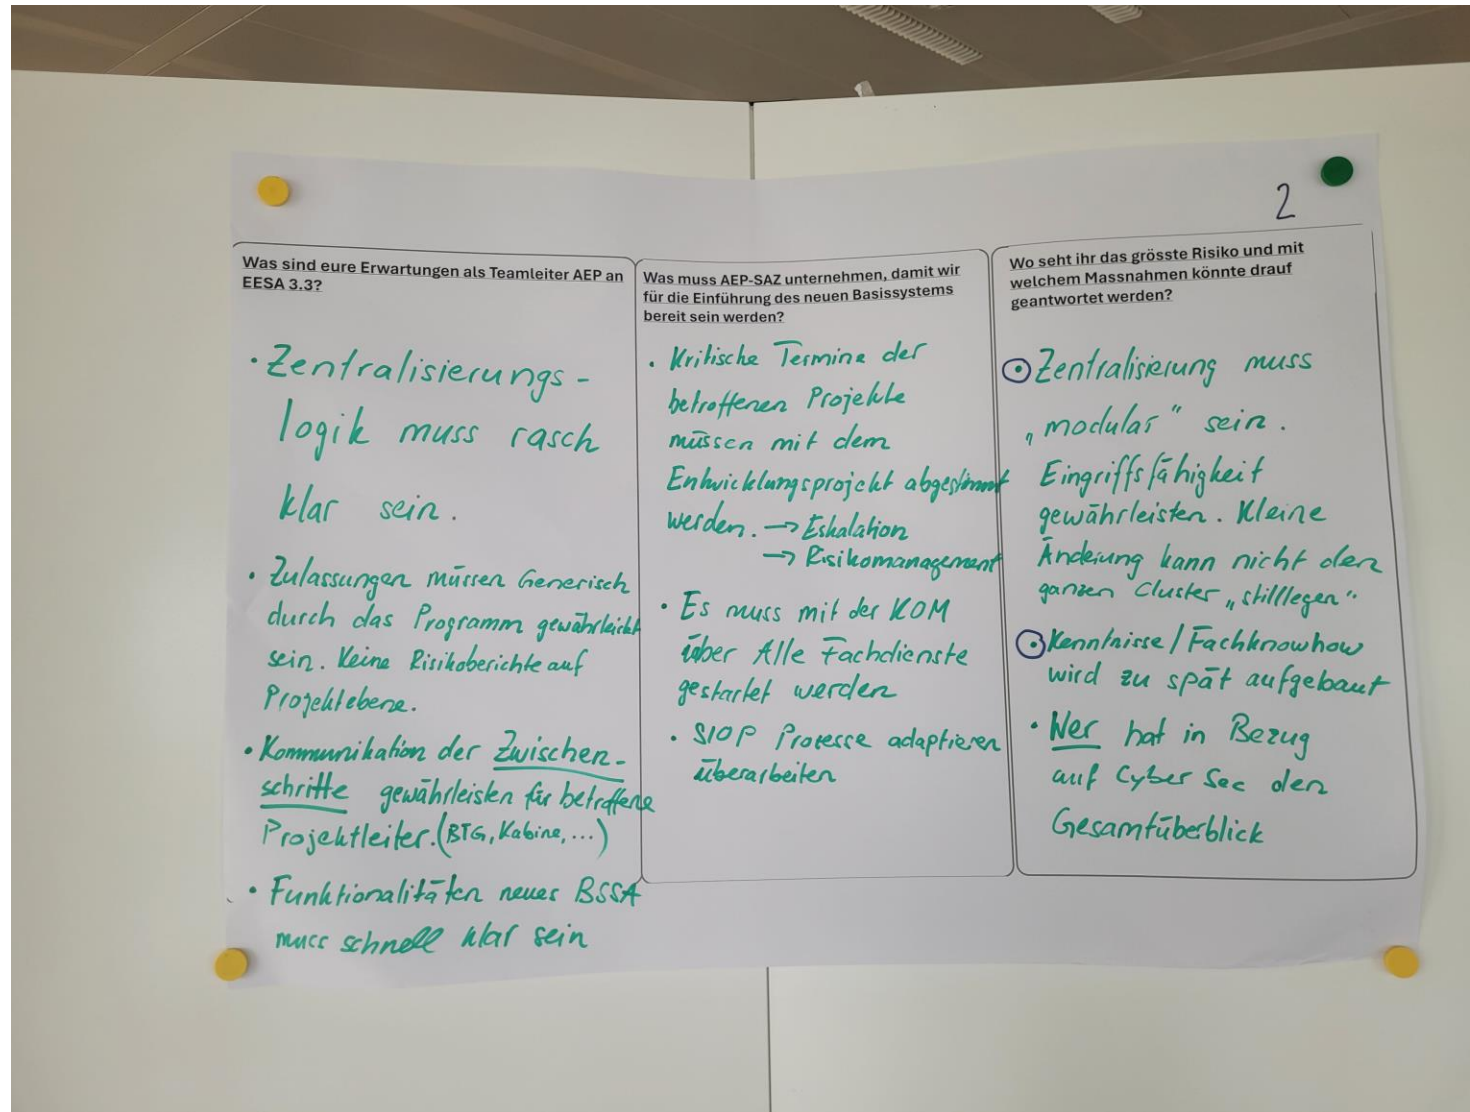 2
Was sind eure Erwartungen als Teamleiter AEP an
EESA 3.3?
• Zentralisierungs-
logik muss rasch
klar sein.
• Zulassungen müssen Generisch
durch das Programm gewährleistet
sein. Keine Risikoberichte auf
Projektebene.
• Kommunikation der Zwischen-
schritte gewährleisten für betroffene
Projektleiter. (BTG, Kabine, ...)
• Funktionalitäten neues BSSA
muss schnell klar sein
Was muss AEP-SAZ unternehmen, damit wir
für die Einführung des neuen Basissystems
bereit sein werden?
• Kritische Termine der
betroffenen Projekte
müssen mit dem
Entwicklungsprojekt abgestimmt
werden. → Eskalation
→ Risikomanagement
• Es muss mit der KOM
über Alle Fachdienste
gestartet werden
• SIOP Prozesse adaptieren
überarbeiten
Wo seht ihr das grösste Risiko und mit
welchem Massnahmen könnte drauf
geantwortet werden?
• Zentralisierung muss
„modular“ sein.
Eingriffsfähigkeit
gewährleisten. Kleine
Änderung kann nicht den
ganzen Cluster „stilllegen“
• Kenntnisse/Fachknowhow
wird zu spät aufgebaut
• Wer hat in Bezug
auf Cyber Sec den
Gesamtüberblick